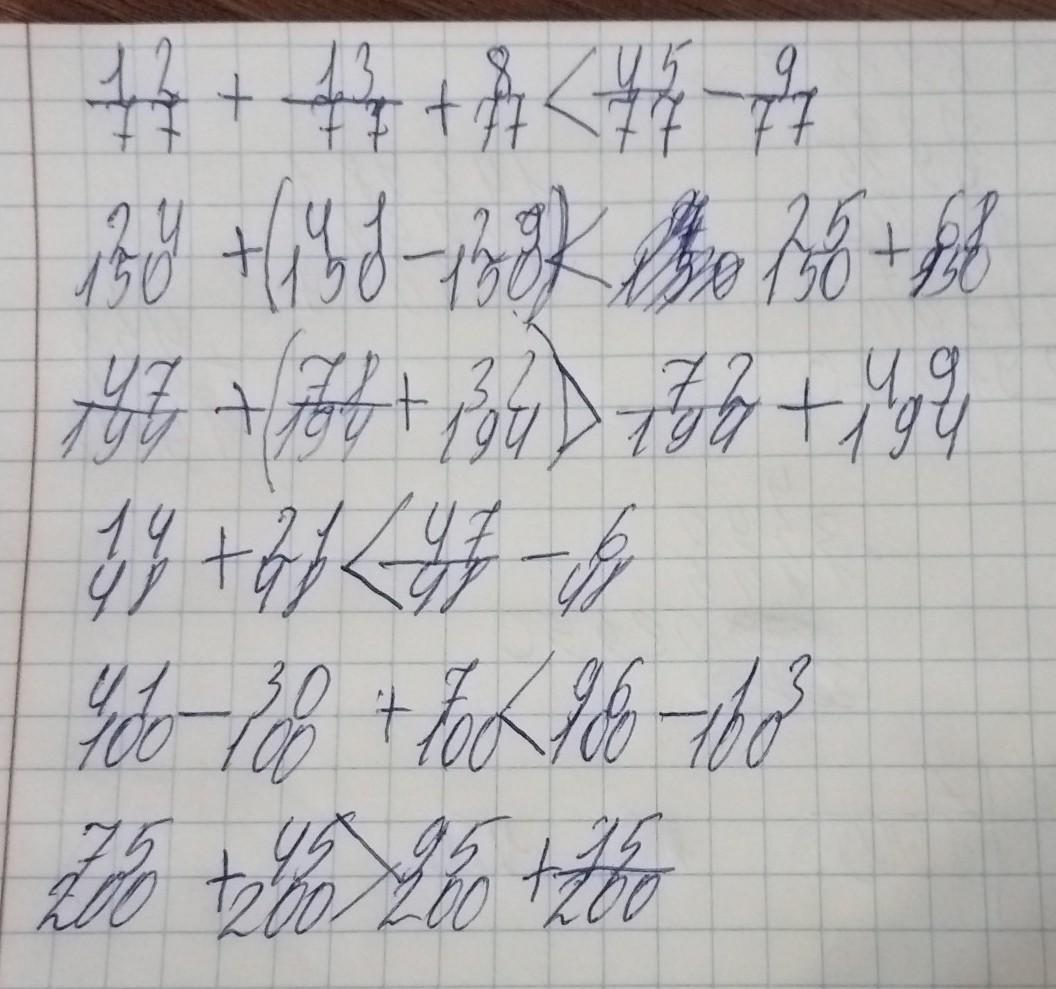 12/77 + 13/77 + 8/77 < 45/77 - 9/77
24/150 + (41/150 - 29/150) < 25/150 + 68/150
47/194 + (78/194 + 32/194) > 72/194 + 49/194
14/48 + 21/48 < 47/48 - 6/48
41/100 - 30/100 + 7/100 < 96/100 - 13/100
75/200 + 45/200 > 95/200 + 15/200